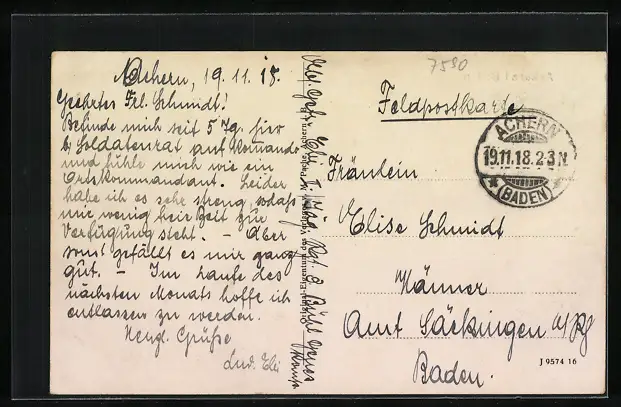 Achern, 19.11.18.
Geehrtes Frl. Schmidt!
Befinde mich seit 5 Tg. hier
b. Soldatenrat auf Kommando
und fühle mich wie ein
Ortskommandant. Leider
habe ich es sehr streng, sodaß
mir wenig frei Zeit zur
Verfügung steht. — Aber
sonst gefällt es mir ganz
gut. — Im Laufe des
nächsten Monats hoffe ich
entlassen zu werden.
Herzl. Grüße
Lud.
7590
Feldpostkarte
ACHERN
19.11.18.2-3N
(BADEN)
Fräulein
Elise Schmidt
Männer
Amt Säckingen a/Rh
Baden.
J 9574 16